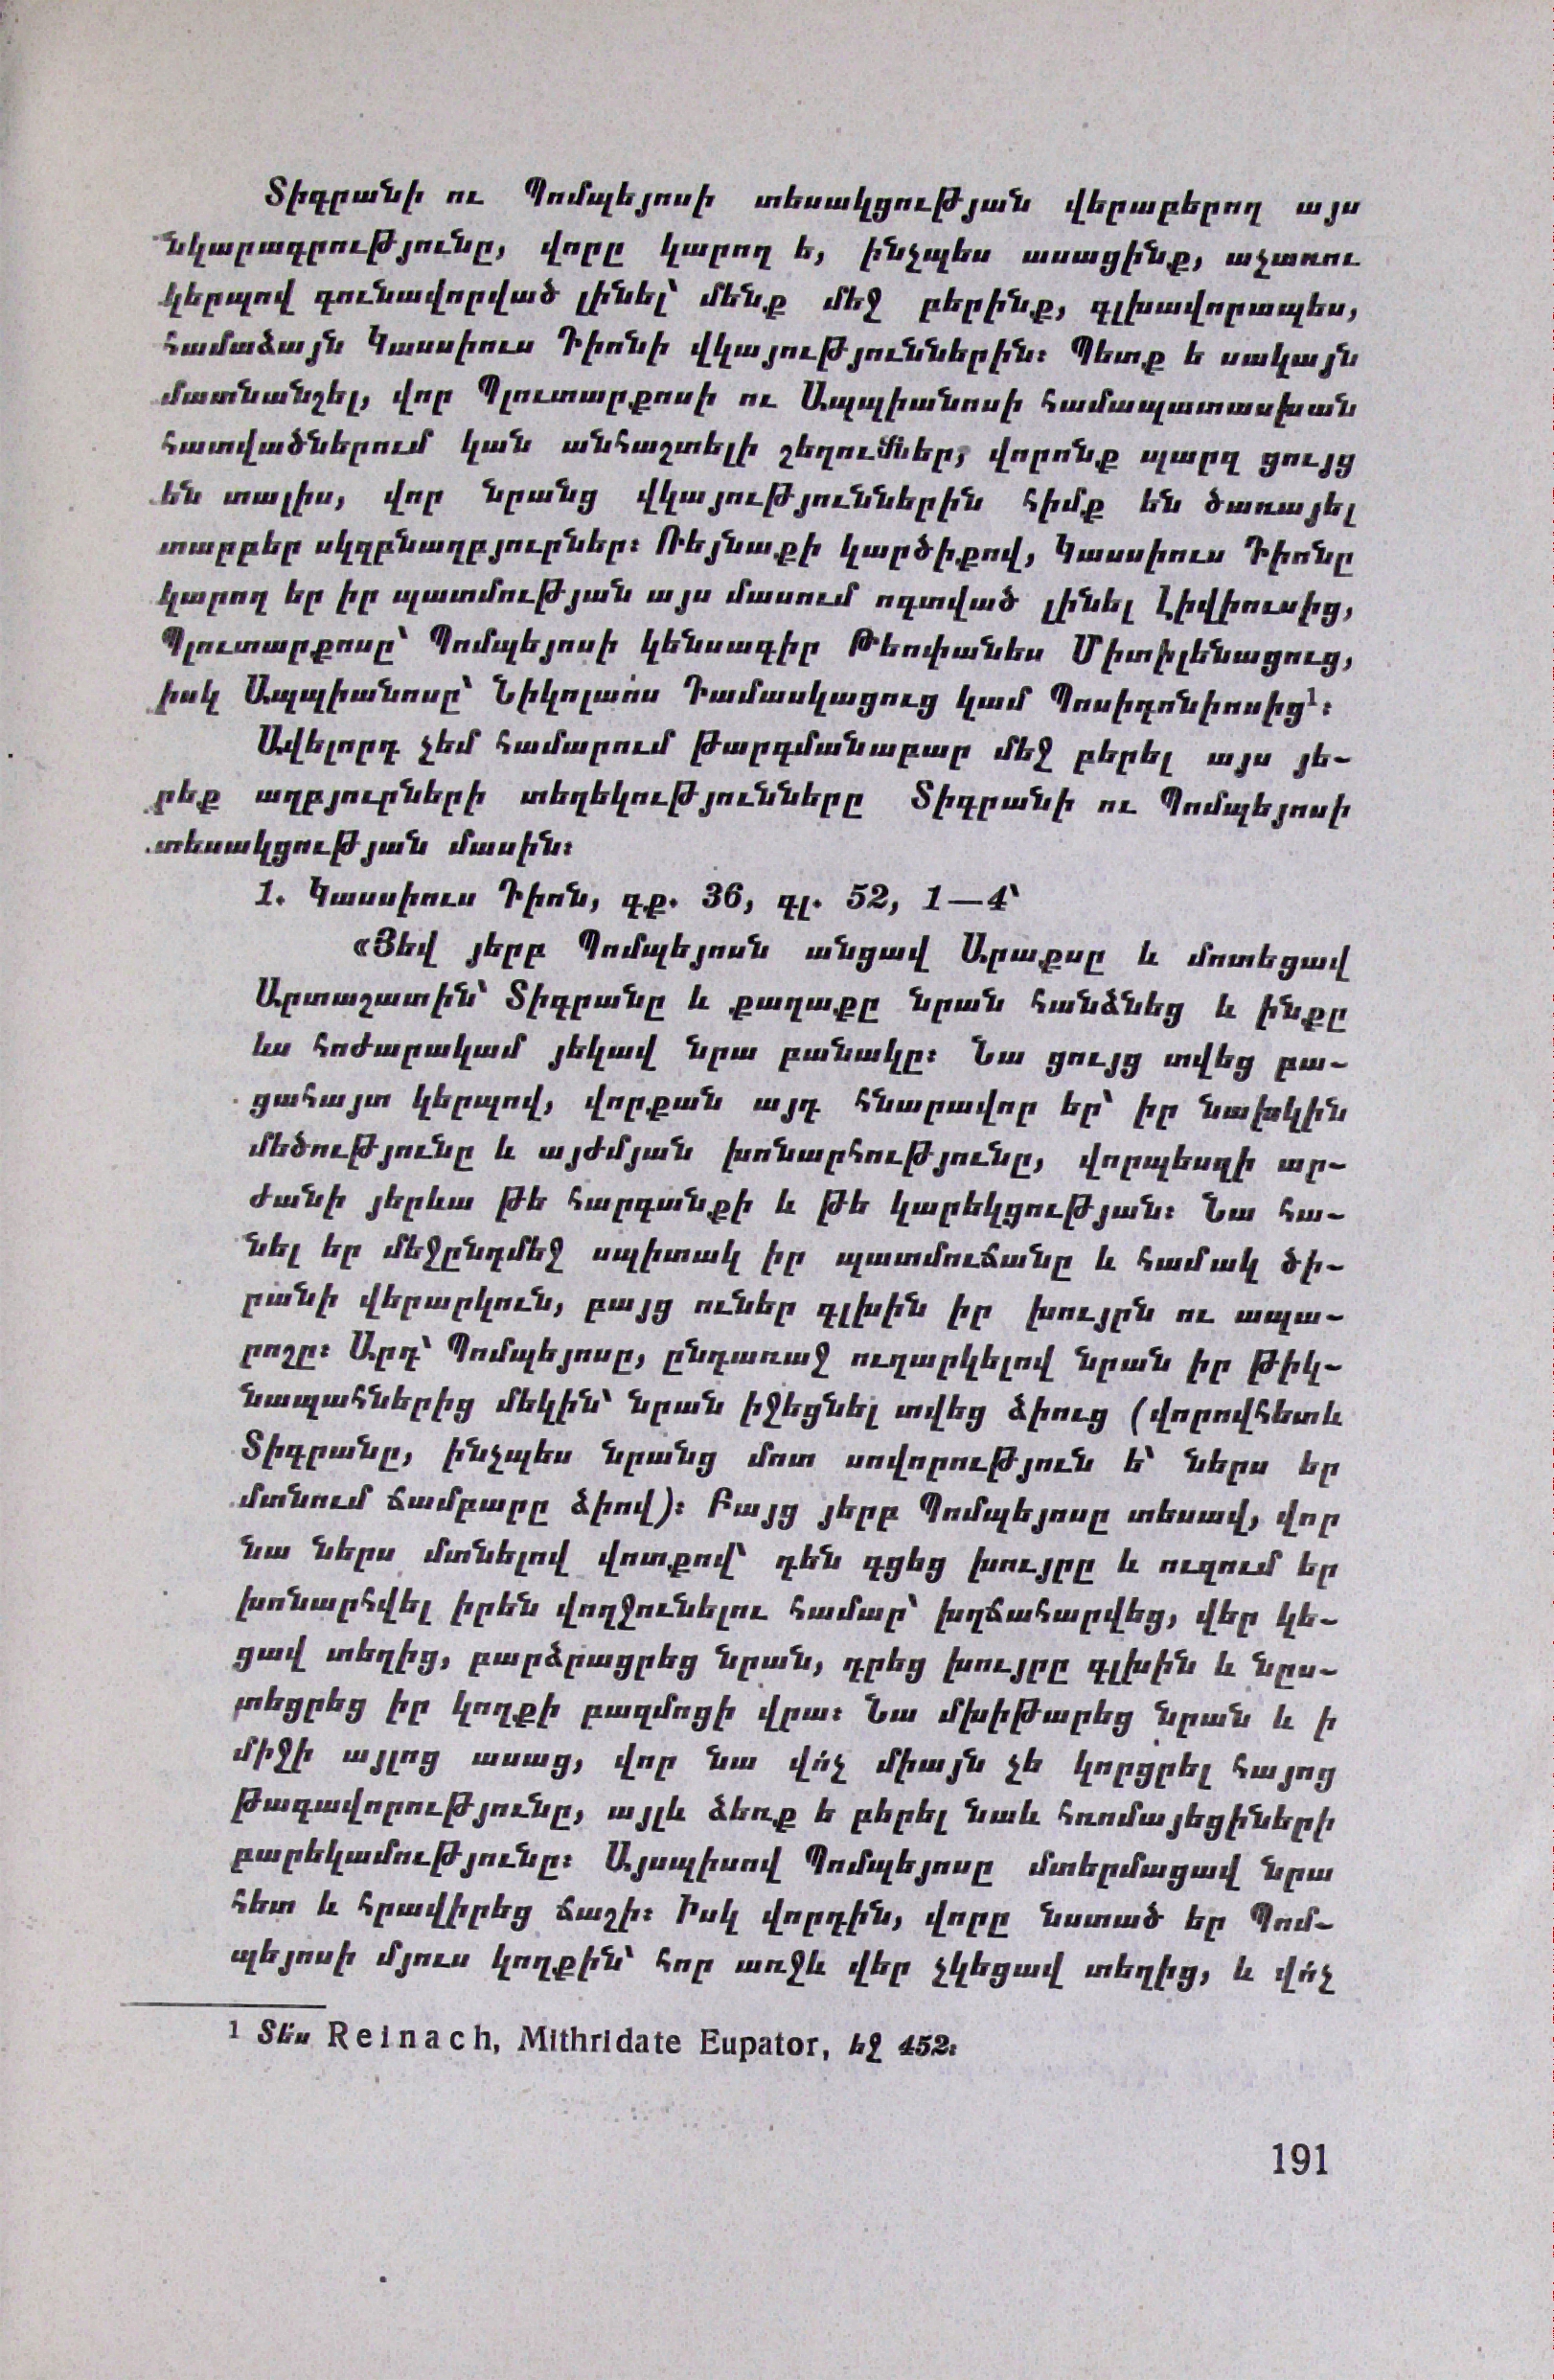 Տիգրանի ու Պոմպեյոսի տեսակցության վերաբերող այս
նկարագրությունը, վորը կարող ե, ինչպես ասացինք, աչառու
կերպով գունավորված լինել՝ մենք մեջ բերինք, գլխավորապես,
համաձայն Կասսիուս Դիոնի վկայություններին։ Պետք ե սակայն
մատնանշել, վոր Պլուտարքոսի ու Ապպիանոսի համապատասխան
հատվածներում կան անհաշտելի շեղումներ, վորոնք պարզ ցույց
են տալիս, վոր նրանց վկայություններին հիմք են ծառայել
տարբեր սկզբնաղբյուրներ։ Ռեյնաքի կարծիքով, Կասսիուս Դիոնը
կարող եր իր պատմության այս մասում ոգտված լինել Լիվիուսից,
Պլուտարքոսը՝ Պոմպեյոսի կենսագիր Թեոփանես Միտիլենացուց,
իսկ Ապպիանոսը՝ Նիկոլաոս Դամասկացուց կամ Պոսիդոնիոսից¹։
Ավելորդ չեմ համարում թարգմանաբար մեջ բերել այս յե-
րեք աղբյուրների տեղեկությունները Տիգրանի ու Պոմպեյոսի
տեսակցության մասին։
1. Կասսիուս Դիոն, գք. 36, գլ. 52, 1—4՝
«Յեվ յերբ Պոմպեյոսն անցավ Արաքսը և մոտեցավ
Արտաշատին՝ Տիգրանը և քաղաքը նրան հանձնեց և ինքը
ևս հոժարակամ յեկավ նրա բանակը։ Նա ցույց տվեց բա-
ցահայտ կերպով, վորքան այդ հնարավոր եր՝ իր նախկին
մեծությունը և այժմյան խոնարհությունը, վորպեսզի ար-
ժանի յերևա թե հարգանքի և թե կարեկցության։ Նա հա-
նել եր մեջընդմեջ սպիտակ իր պատմուճանը և համակ ծի-
րանի վերարկուն, բայց ուներ գլխին իր խույրն ու ապա-
րոշը։ Արդ՝ Պոմպեյոսը, ընդառաջ ուղարկելով նրան իր թիկ-
նապահներից մեկին՝ նրան իջեցնել տվեց ձիուց (վորովհետև
Տիգրանը, ինչպես նրանց մոտ սովորություն ե՝ ներս եր
մտնում ճամբարը ձիով)։ Բայց յերբ Պոմպեյոսը տեսավ, վոր
նա ներս մտնելով վոտքով՝ դեն գցեց խույրը և ուզում եր
խոնարհվել իրեն վողջունելու համար՝ խղճահարվեց, վեր կե-
ցավ տեղից, բարձրացրեց նրան, դրեց խույրը գլխին և նըս-
տեցրեց իր կողքի բազմոցի վրա։ Նա մխիթարեց նրան և ի
միջի այլոց ասաց, վոր նա վո՛չ միայն չե կորցրել հայոց
թագավորությունը, այլև ձեռք ե բերել նաև հռոմայեցիների
բարեկամությունը։ Այսպիսով Պոմպեյոսը մտերմացավ նրա
հետ և հրավիրեց ճաշի։ Իսկ վորդին, վորը նստած եր Պոմ-
պեյոսի մյուս կողքին՝ հոր առջև վեր չկեցավ տեղից, և վո՛չ
¹ Տե՛ս Reinach, Mithridate Eupator, եջ 452։
191